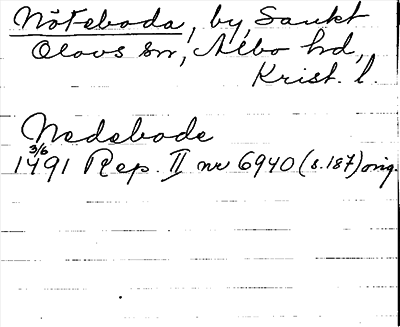 Nöteboda, by, Sankt
Olovs sn, Albo hd,
Krist. l.
Nedebode
3/6
1491 Rep. II nr 6940 (s. 187) orig.